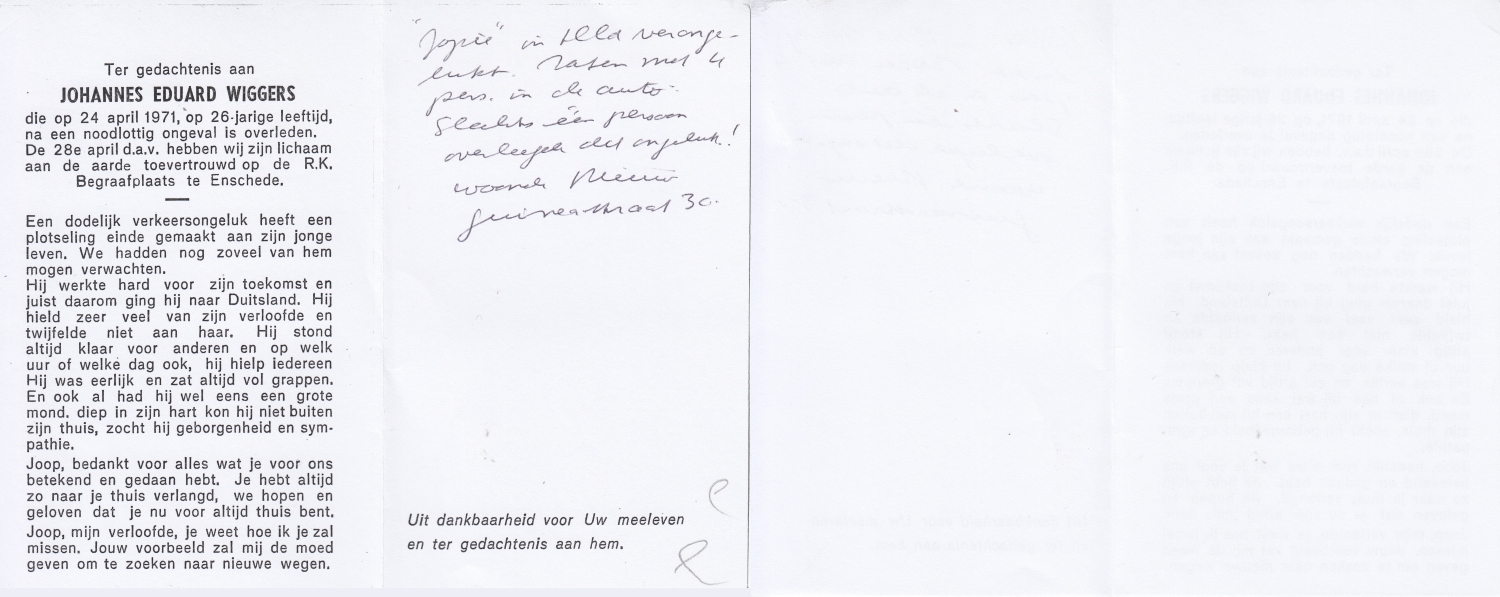 Ter gedachtenis aan
JOHANNES EDUARD WIGGERS
die op 24 april 1971, op 26-jarige leeftijd,
na een noodlottig ongeval is overleden.
De 28e april d.a.v. hebben wij zijn lichaam
aan de aarde toevertrouwd op de R.K.
Begraafplaats te Enschede.
Een dodelijk verkeersongeluk heeft een
plotseling einde gemaakt aan zijn jonge
leven. We hadden nog zoveel van hem
mogen verwachten.
Hij werkte hard voor zijn toekomst en
juist daarom ging hij naar Duitsland. Hij
hield zeer veel van zijn verloofde en
twijfelde niet aan haar. Hij stond
altijd klaar voor anderen en op welk
uur of welke dag ook, hij hielp iedereen
Hij was eerlijk en zat altijd vol grappen.
En ook al had hij wel eens een grote
mond. diep in zijn hart kon hij niet buiten
zijn thuis, zocht hij geborgenheid en sym-
pathie.
Joop, bedankt voor alles wat je voor ons
betekend en gedaan hebt. Je hebt altijd
zo naar je thuis verlangd, we hopen en
geloven dat je nu voor altijd thuis bent.
Joop, mijn verloofde, je weet hoe ik je zal
missen. Jouw voorbeeld zal mij de moed
geven om te zoeken naar nieuwe wegen.
in veronge-
lukt. Zaten met 4
pers. in de auto.
Slechts één persoon
overleefde dit ongeluk!
woonde Nieuw
Guineastraat 30.
Uit dankbaarheid voor Uw meeleven
en ter gedachtenis aan hem.